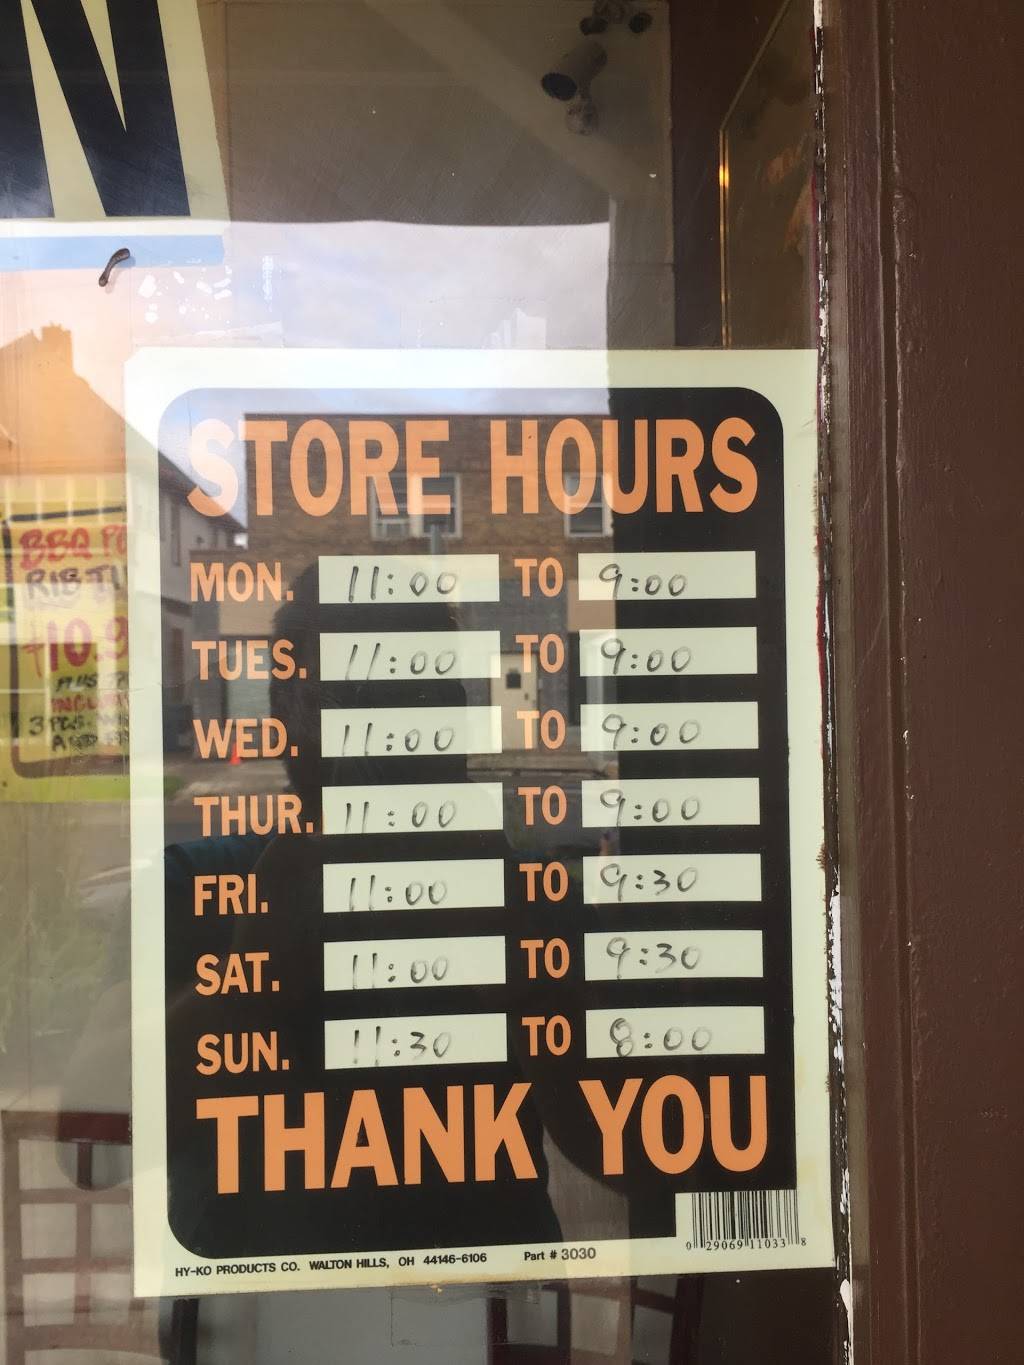 N
STORE HOURS
MON. 11:00 TO 9:00
TUES. 11:00 TO 9:00
WED. 11:00 TO 9:00
THUR. 11:00 TO 9:00
FRI. 11:00 TO 9:30
SAT. 11:00 TO 9:30
SUN. 11:30 TO 8:00
THANK YOU
0 29069 11033 8
HY-KO PRODUCTS CO. WALTON HILLS, OH 44146-6106 Part # 3030
BBQ
RIB
10.9
PLUS
3 PCS.